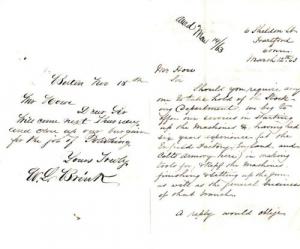 Berlin Nov 18th
Mr Howe
Dear Sir
Will come next Thursday
and close up our bargain
for the job of Polishing
Yours Truly
W. L. Brink
6 Sheldon St
Hartford
Conn
March 12th 63
Mr Howe
Sir
Should you require any
one to take hold of the Stock
ing Department I beg to
offer my services in starting
up the Machines & having
six years experience at the
Enfield Factory, England, and
Colts Armory here in making
tools for, & keep the machines
finishing & setting up the gun
as well as the general business
of that branch
A reply would oblige